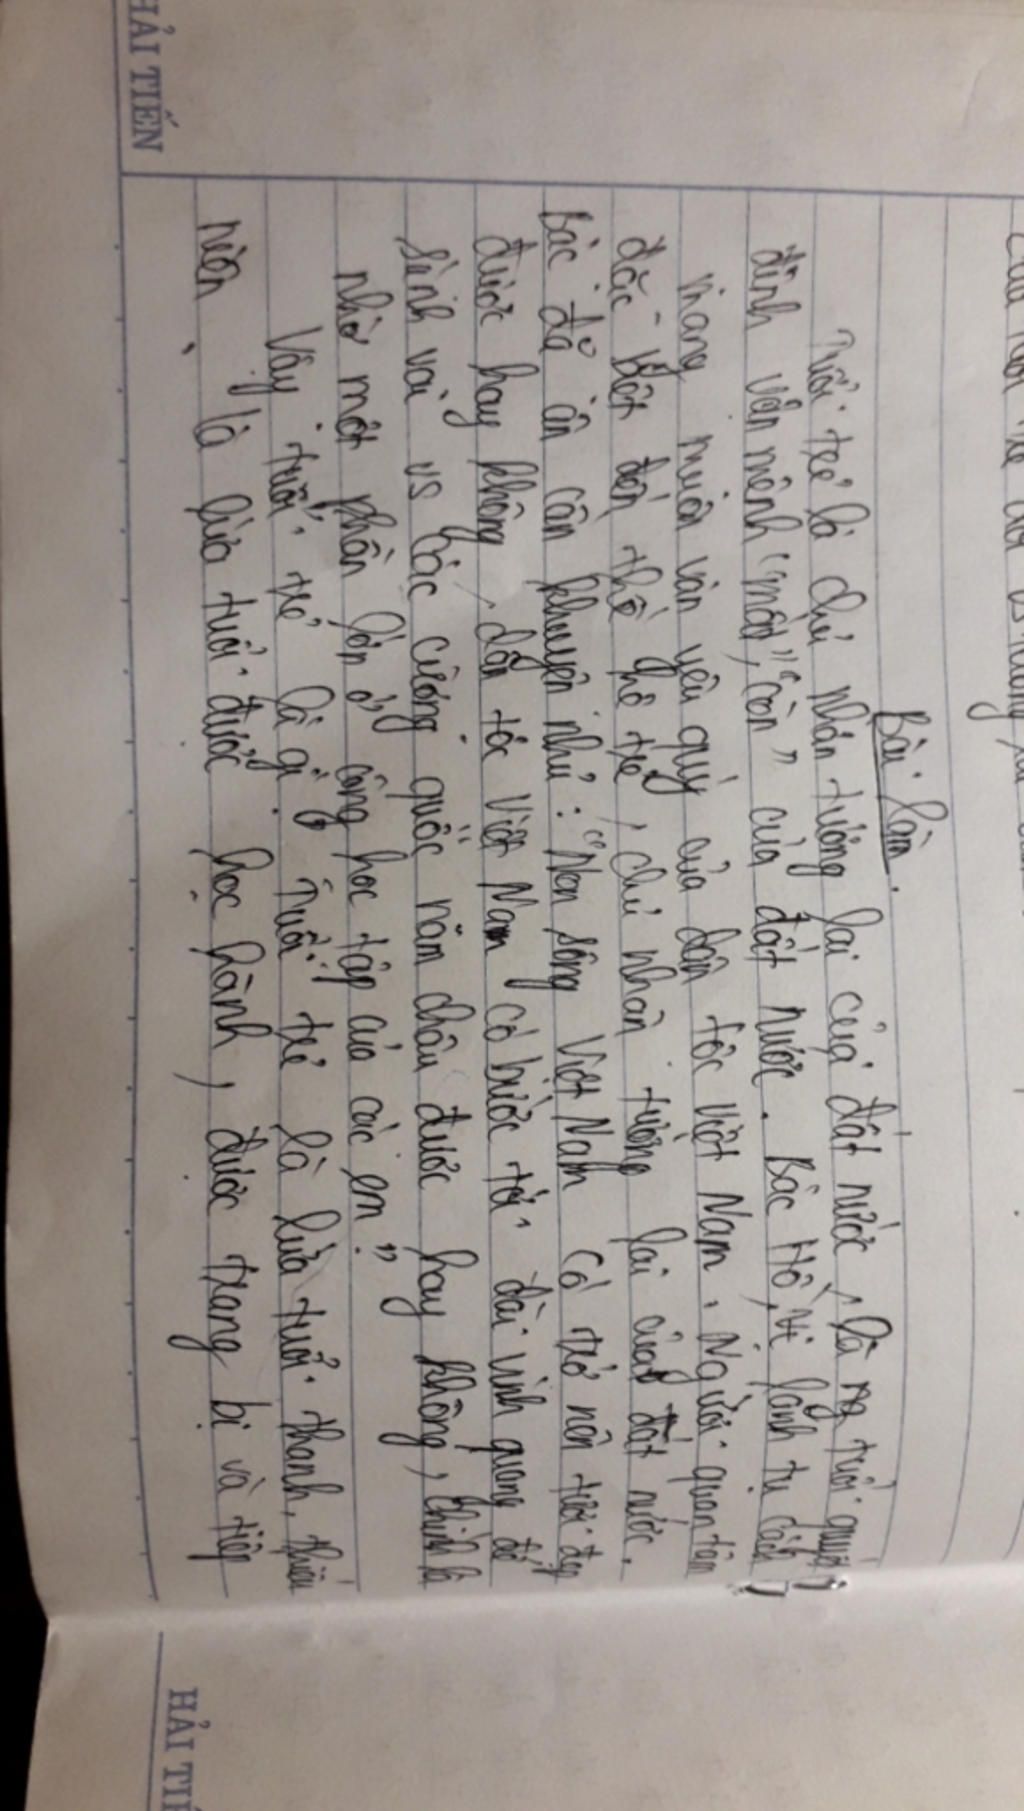 Bài làm.
Tuổi trẻ là chủ nhân tương lai của đất nước, là ng tuổi quyết
định vận mệnh "mất", "còn" của đất nước. Bác Hồ, vị lãnh tụ cách
mạng muôn vàn yêu quý của dân tộc Việt Nam. Người quan tâm
đặc biệt đến thế hệ trẻ, chủ nhân tương lai của đất nước.
Bác đã ân cần khuyên nhủ: "Non sông Việt Nam có trở nên tươi đẹp
được hay không, dân tộc Việt Nam có bước tới đài vinh quang để
sánh vai vs các cường quốc năm châu được hay không, chính là
nhờ một phần lớn ở công học tập của các em".
Vậy tuổi trẻ là gì? Tuổi trẻ là lứa tuổi thanh, thiếu
niên, là lứa tuổi được học hành, được trang bị và tiếp
HẢI TIẾN
HẢI TIẾ